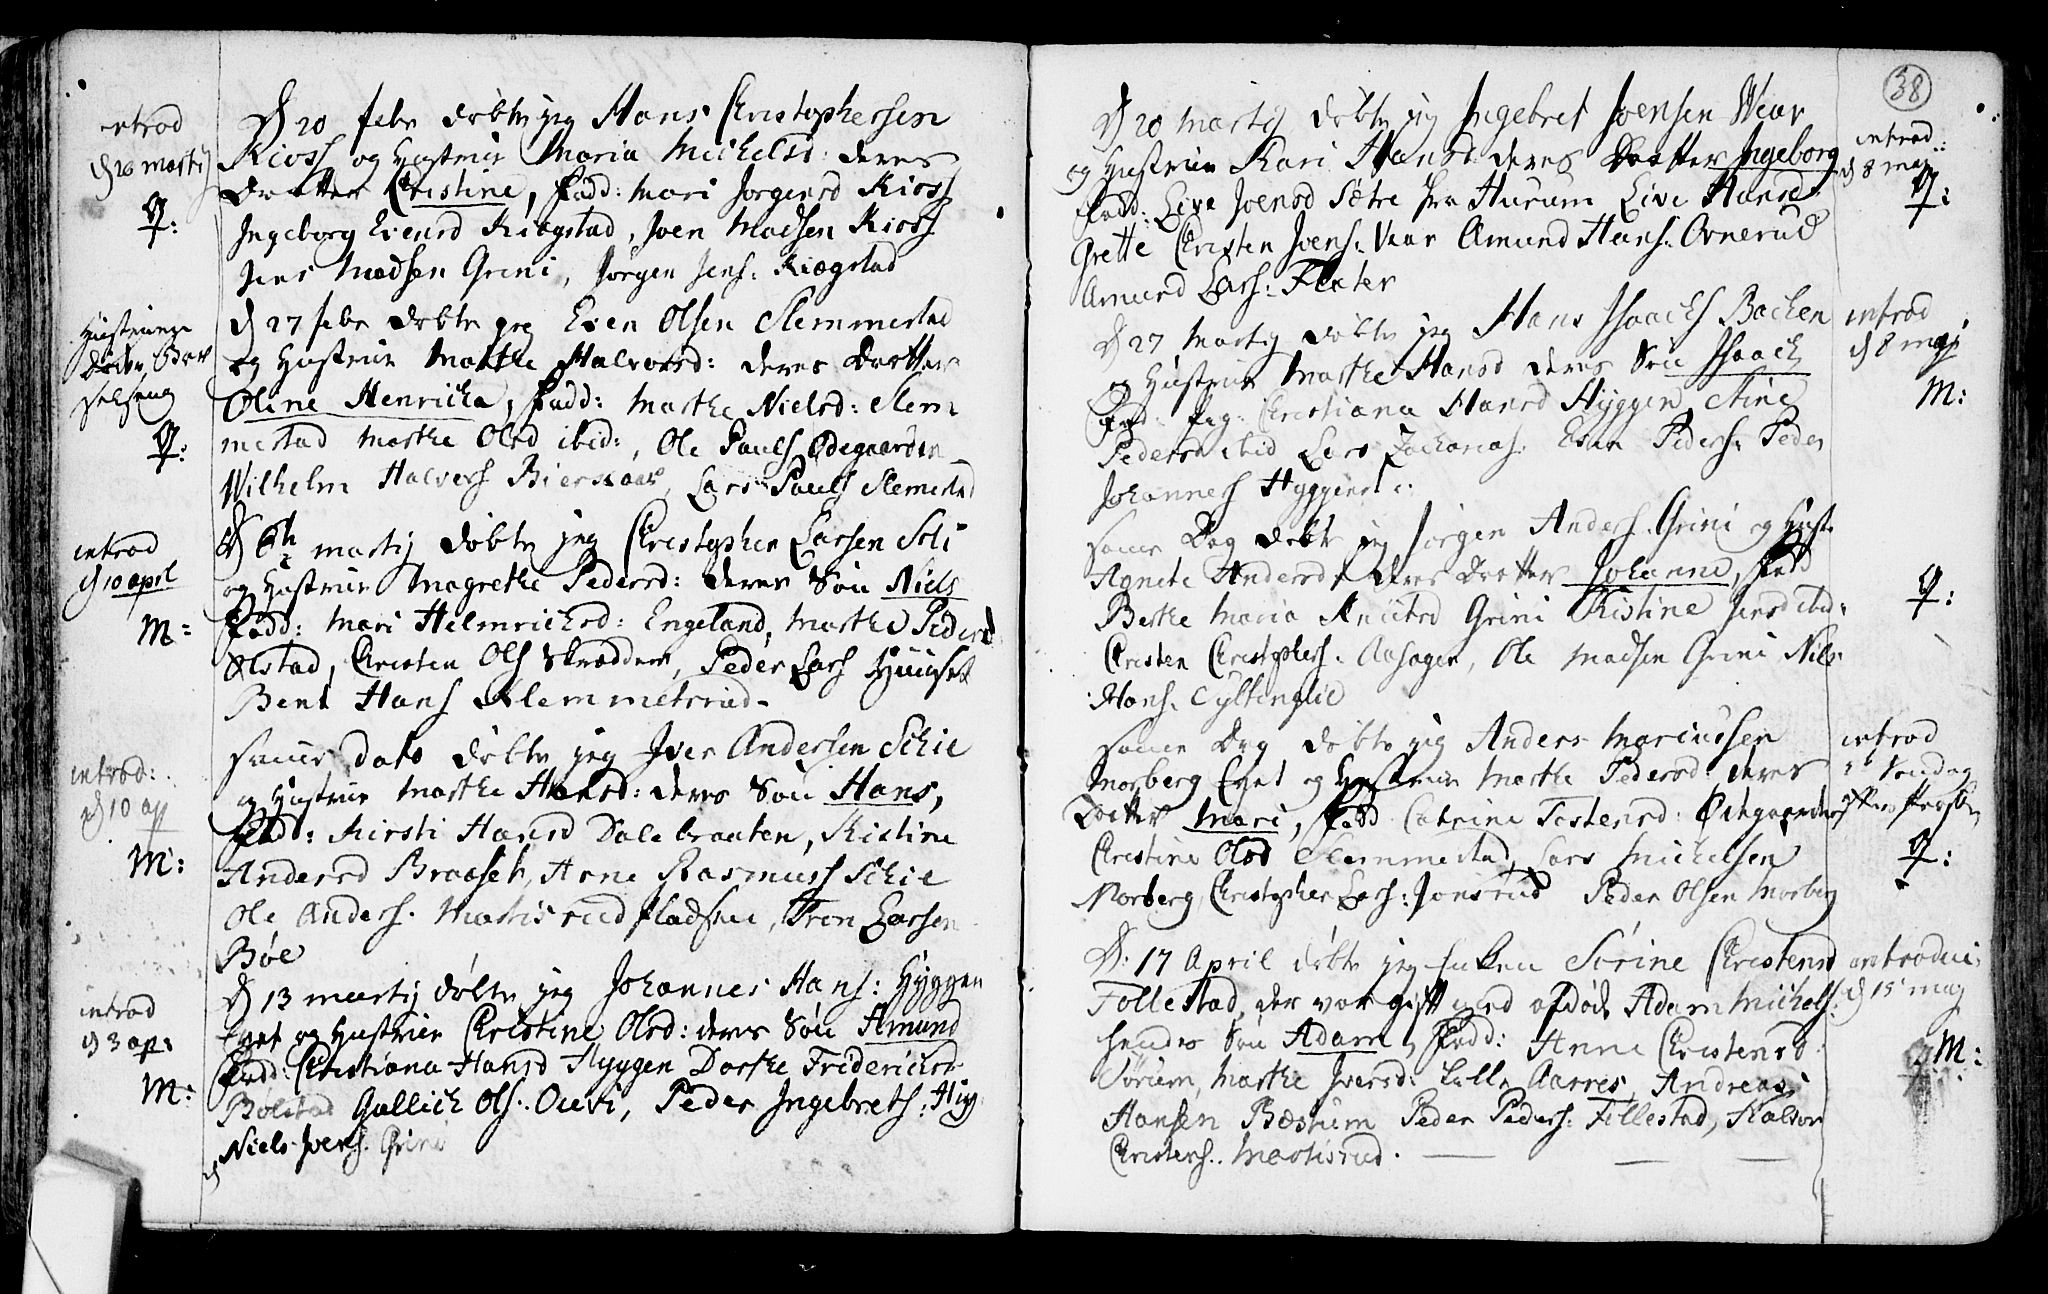 introd
d 20 martij
Q:
D 20 febr døbte jeg Hans Christophersen
Kioss og Hustrue Maria Michelsd: deres
Daatter Christine, Fadd: Mari Jorgensd Kioss
Ingeborg Evensd Kiøgstad, Joen Madsen Kioss
Jens Madsen Grini, Jørgen Jens: Kiægstad
Hustruens
døde Bar
selseng
Q:
D 27 febr døbte jeg Even Olsen Slemmestad
og Hustrue Marthe Halvorsd: deres Daatter
Oline Henricha, Fadd: Marthe Nielsd: Slem
mestad Marthe Olsd ibid:, Ole Pauls Ødegaarden
Wilhelm Halvors Bierskaas, Lars Pauls Slemestad
introd
d 10 april
M:
D 6te martij døbte jeg Christopher Larsen Sche
og Hustrue Magrethe Pedersd: deres Søn Niels
Fadd: Mari Helmrichsd: Engeland, Marthe Pedersd
Ølstad, Christen Ols Skrædder, Peder Lars
Bent Hans Klemmetsrud.
introd:
d 10 ap
M:
samme dato døbte jeg Iver Andersen Schie
og Hustrue Marthe Hansd: deres Søn Hans,
Fadd: Kirsti Hansd Dalebraaten, Kistine
Andersd Braaset, Arne Rasmuss Schie
Ole Anders. Mortisrud pladsen, Tron Larsen
Bøe
introd
d 3 ap:
M:
D 13 martij døbte jeg Johannes Hans: Hyggen
Eget og Hustrue Christine Olsd: deres Søn Amund
Fadd: Christiana Hansd Hyggen Dorthe Friderichsd
Bølstad Gullich Ols: Ouvi, Peder Ingebrets: Hyg
Niels Ivers: Grini
38
D 20 martij døbte jeg Ingebret Joensen Wear
og Hustrue Kari Hansd: deres Daatter Ingeborg
Fadd: Live Joensd Sætre fra Hurum Live Hansd
Grette Christen Joens: Vear Amund Hans: Ovnerud
Amund Lars: Flater
introd:
d 8 maj
Q:
D 27 Martij døbte jeg Hans Isaachs Bachen
og Hustrue Marthe Hansd deres Søn Isaach
Fadd: Pig: Christiana Hansd Hyggen, Stine
Pedersd ibid Lars Zacharias: Even Peders: Peder
Johanness Hyggens
introd
d 8 maj
M:
samme Dag døbte jeg Jørgen Anders: Grini og Hust:
Agnete Andersd: deres Daatter Johanne, Fadd
Berthe Maria Knutsd Grini Kistine Jensd ibid:
Christen Christophers: Aasagen, Ole Madsen Grini Niels
Hans: Gyltenglie
Q:
samme Dag døbte jeg Anders Mariussen
Morberg Eget og Hustrue Marthe Pedersd: deres
Datter Mari, Fadd Catrine Tostensd: Ødegaarden
Christine Olsd Slemmestad, Lars Michelsen
Morberg, Christopher Lars: Jonsrud Peder Olsen Morberg
introd
Søndag
Q:
D. 17 April døbte jeg Enken Sørine Christensd
Follestad, der var gift med afdøde Adam Michels:
hendes Søn Adam, Fadd: Anne Christensd:
Sørum, Marthe Iversd: Lille Aarnes, Andreas
Hansen Bæstum Peder Peders: Follestad, Halvor
Christens: Mortisrud.
introduc:
d 15 maj
M: